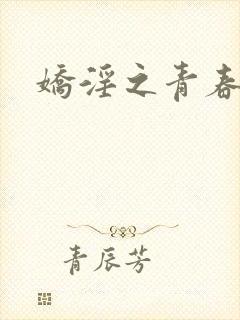 嬌淫之青春
青辰芳